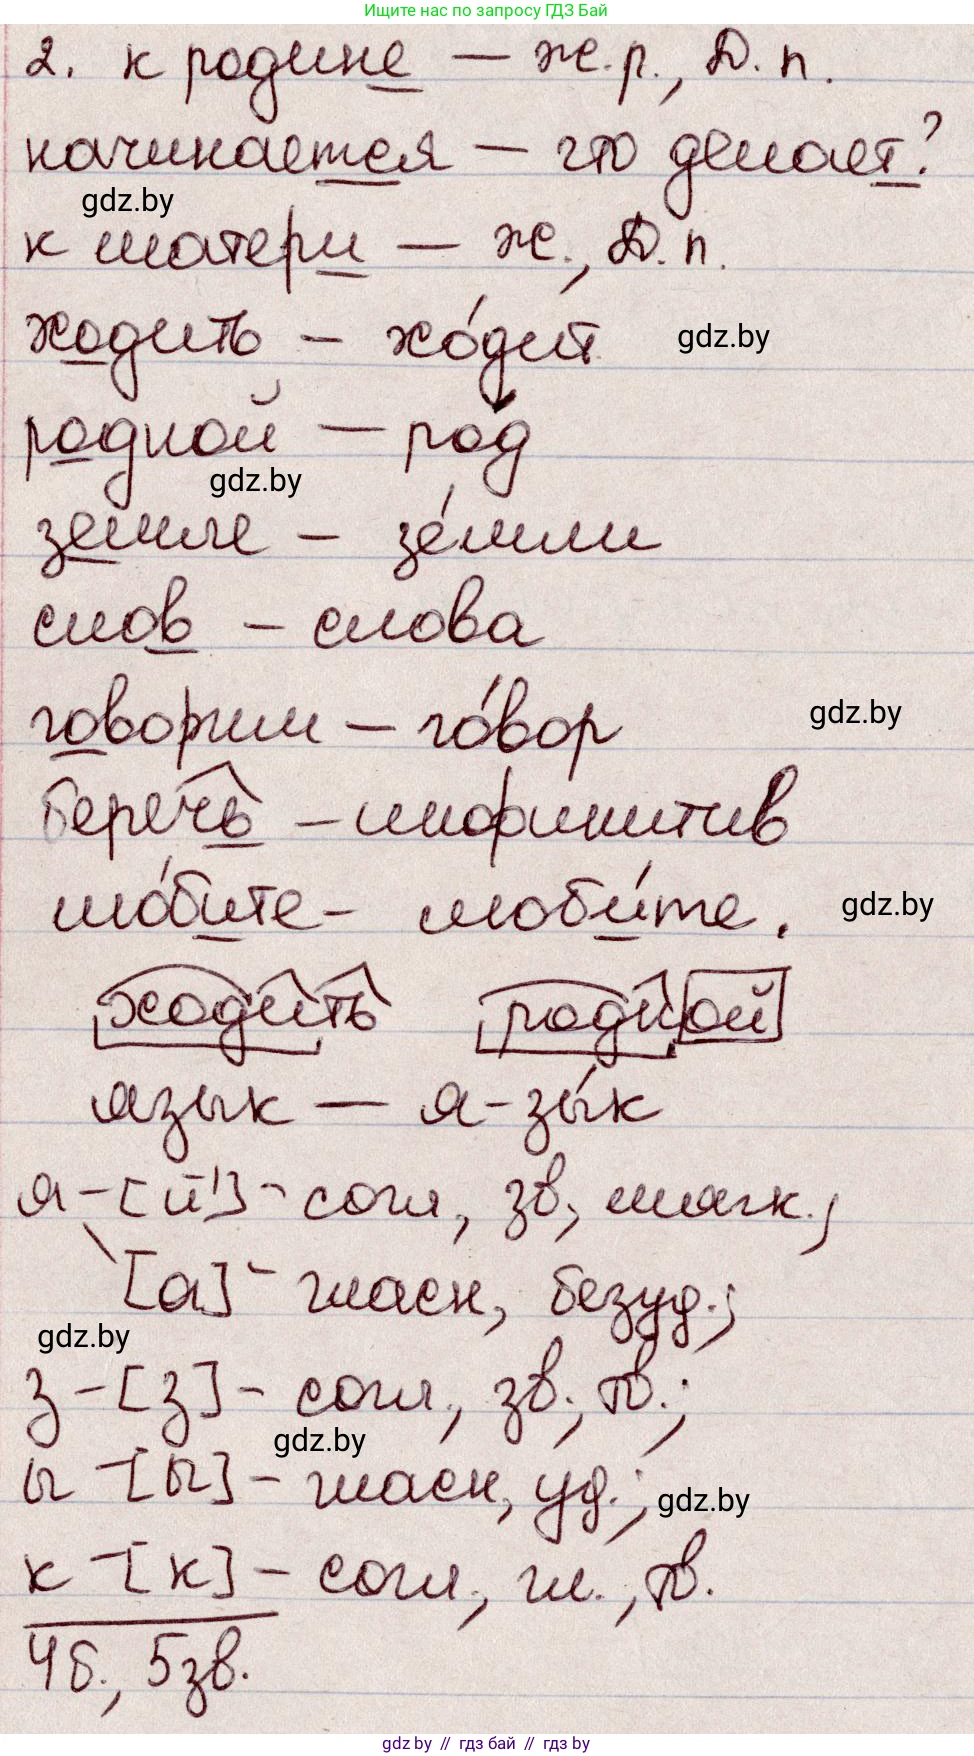 Ищите нас по запросу ГДЗ Бай
2. к родине – ж.р., Д. п.
начинается – что делает?
gdz.by
к матери – ж., Д. п.
ходить – хо́дит
gdz.by
родной – ро́д
gdz.by
земле – зе́мли
слов – слова
говорим – го́вор
gdz.by
беречь – инфинитив
лю́бите – люби́те.
gdz.by
ходить родной
язык – я-зы́к
я – [й'] – согл., зв., мягк.;
[а] – гласн., безуд.;
gdz.by
з – [з] – согл., зв., тв.;
gdz.by
ы – [ы] – гласн., уд.;
gdz.by
к – [к] – согл., гл., тв.
4б., 5зв.
gdz.by // гдз бай // гдз by